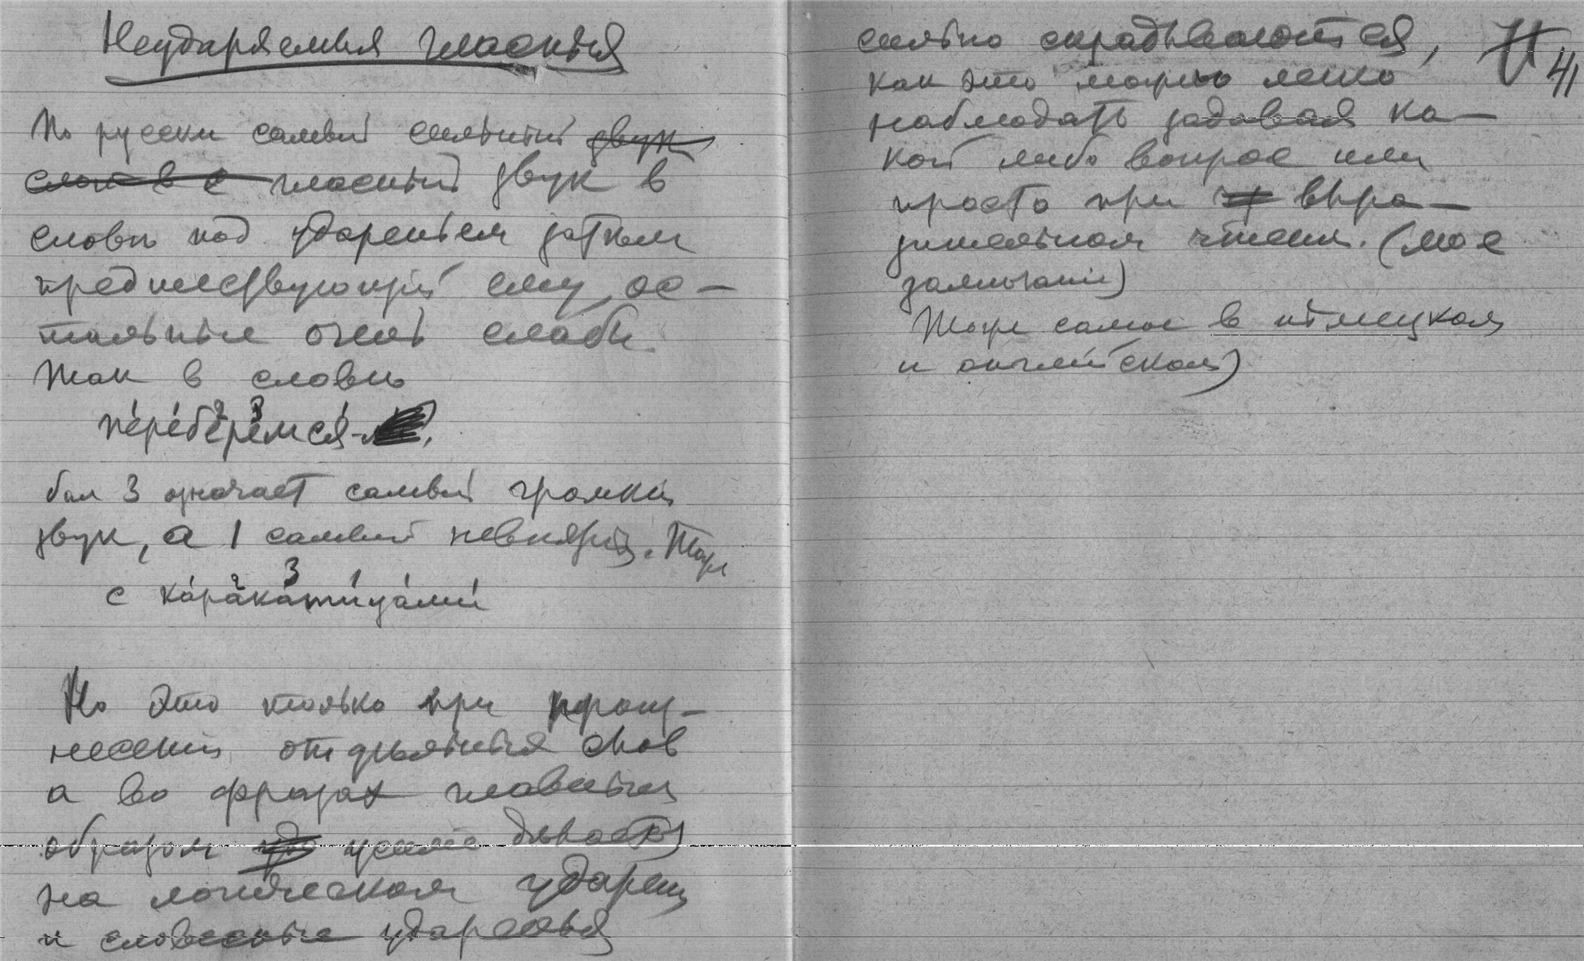 Неударяемыя гласныя
По русски самый сильный звук
слов в с гласный звук в
словѣ под ударением затем
предшествующий ему, ос-
тальные очень слабы
Так в словѣ
перебере́мся
бал 3 означает самый громкий
звук, а 1 самый невнятный. Тоже
с каракатицами
Но это только при произ-
несении отдѣльных слов
а во фразах главным
образом усилие дѣлается
на логическом ударении
и словесные ударенья
сильно скрадываются,
41
как это можно легко
наблюдать задавая ка-
кой либо вопрос или
просто при выра-
зительном чтении. (мое
замѣчание)
Тоже самое в нѣмецком
и английском)